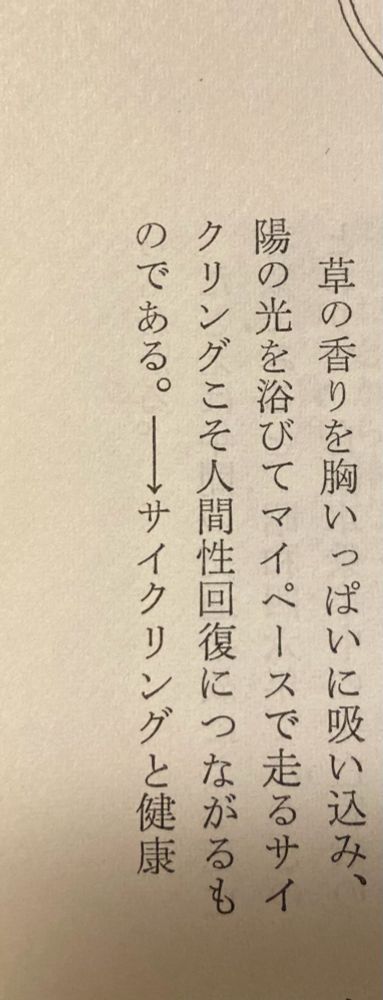 草の香りを胸いっぱいに吸い込み、
陽の光を浴びてマイペースで走るサイ
クリングこそ人間性回復につながるも
のである。──→サイクリングと健康